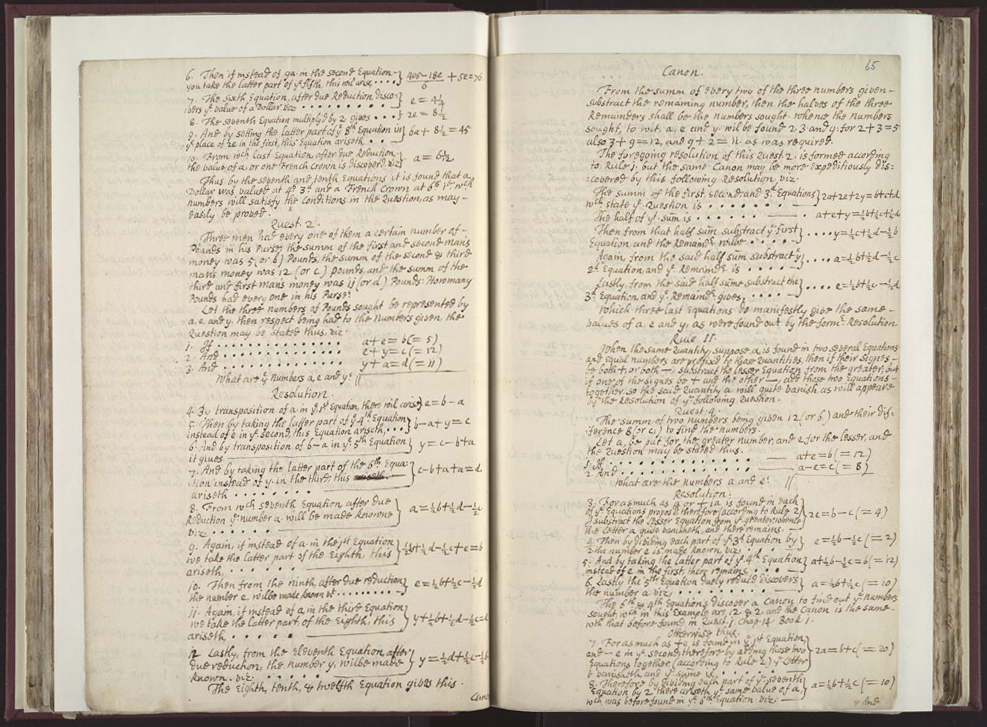 6. Then if instead of 9a in the second Equation
you take the latter part of yͤ fifth, this will arise
405-18e / 6 + 5e = 76
7. The Sixth Equation, after due Reduction, disco-
vers yͤ value of a Dollar viz
e = 4¼
8. The seventh Equation multiplyed by 2 gives
2e = 8½
9. And by setting the latter part of yͤ 8th Equation in
yͤ place of 2e in the first, this Equation ariseth
6a + 8½ = 45
10. From wch last Equation after due Reduction,
the value of a, or one French crown is discover'd, viz
Thus by the seventh and tenth Equations it is found that a
Dollar was valued at 4s 3d and a French Crown at 6s 1d wch
numbers will satisfy the Conditions in the Question, as may
easily be proved.
Quest. 2.
Three men had every one of them a certain number of
Pounds in his Purse, the summ of the first and second mans
money was 5 (or b) Pounds, the summ of the second & third
mans money was 12 (or c) pounds, and the summ of the
third and first mans money was 11 (or d) Pounds: How many
Pounds had every one in his Purse?
Let the three numbers of Pounds sought be represented by
a, e, and y, then respect being had to the Numbers given the
Question may be stated thus, viz.
1. If a+e = b (= 5)
2. And e+y = c (= 12)
3. And y+a = d (= 11)
What are yͤ Numbers a, e and y?
Resolution.
4. By transposition of a in yͤ 1st Equation, there will arise
e = b - a
5. Then by taking the latter part of yͤ 4th Equation
instead of e in yͤ second, this Equation ariseth
b-a+y = c
6. And by transposition of b-a in yͤ 5th Equation
it gives
y = c-b+a
7. And by taking the latter part of the 6th Equa-
tion instead of y, in the third, this
ariseth
c-b+a+a = d
8. From wch seventh Equation after due
Reduction yͤ number a will be made knowne
viz
a = ½b+½d-½c
9. Again, if instead of a in the 1st Equation
we take the latter part of the Eighth, this
ariseth
½b+½d-½c+e = b
10. Then from the ninth, after due reduction
the number e, will be made known viz
e = ½b+½c-½d
11. Again if instead of a, in the third Equation
we take the latter part of the Eighth, this
ariseth
y+½b+½d-½c=d
12 Lastly, from the Eleventh Equation after
due reduction, the number y, will be made
known. viz:
y = ½d+½c-½b
The Eighth, tenth, & twelfth Equation gives this
Cano
65
Canon.
From the summ of every two of the three numbers given
substract the remaining number, then the halves of the three
Remainders shall be the numbers sought. whence the numbers
sought, to wit, a, e and y, will be found 2, 3 and 9: for 2+3=5
also 3+9=12, and 9+2=11 as was required.
The foregoing resolution of this Quest. 2. is formed according
to Rule 1, but the same Canon may be more expeditiously dis-
covered by this following Resolution, viz.
The summ of the first, second and 3. Equations
wch state yͤ Question is
2a+2e+2y = b+c+d
The half of yͤ sum is
a+e+y = ½b+½c+½d
Then from that half sum substract yͤ first
Equation, and the Remaindr will be
y = ½c+½d-½b
Again, from the said half sum substract yͤ
2d Equation and yͤ Remaindr is
a = ½b+½d-½c
Lastly, from the said half summe substract the
3d Equation, and yͤ Remaindr gives
e = ½b+½c-½d
Which three last Equations do manifestly give the same
values of a, e and y, as were found out by the former Resolution
Rule II.
When the same Quantity, suppose a, is found in two several Equations
and equal numbers are prefixed to those Quantities, then if their signes
be both + or both -, substract the lesser Equation from the greater, but
if one of the signes be + and the other -, add those two Equations
together, so the said Quantity a will quite vanish, as will appeare
by the Resolution of yͤ following Question.
Quest. 4.
The summ of two numbers being given 12 (or b) and their dif-
ference 8 (or c) to find the numbers.
Let a, be put for the greater number, and e for the lesser, and
the Question may be stated thus.
1. If a+e = b (= 12)
2. And a-e = c (= 8)
What are the numbers a and e?
Resolution.
3. Forasmuch as a, or +1a is found in each
of yͤ Equations propos'd therefore (according to Rule 2)
I substract the lesser Equation from yͤ greater, whence
the letter a quite vanisheth, and there remains
2e = b-c (= 4)
4. Then by dividing each part of yͤ 3d Equation by
2 the number e is made known, viz
e = ½b-½c (= 2)
5. And by taking the latter part of yͤ 4th Equation
instead of e in the first, there remains
a+½b-½c = b (= 12)
6. Lastly the 5th Equation duely reduc'd discovers
the number a, viz
a = ½b+½c (= 10)
The 6th & 4th Equations, discover a Canon to find out yͤ numbers
sought wch in this Example are 12 & 2 and the Canon is the same
with that before found in Quest. 1. Chap. 14. Book 1.
Otherwise thus.
7. Forasmuch as +e is found in yͤ 1st Equation
and -e in yͤ second, therefore by adding those two
Equations together (according to Rule 2) yͤ letter
e vanisheth, and yͤ summ is
2a = b+c (= 20)
8. Therefore by dividing each part of yͤ seventh
Equation by 2 there ariseth yͤ same value of a,
wch was before found in yͤ 6th Equation, viz
a = ½b+½c (= 10)
9 And